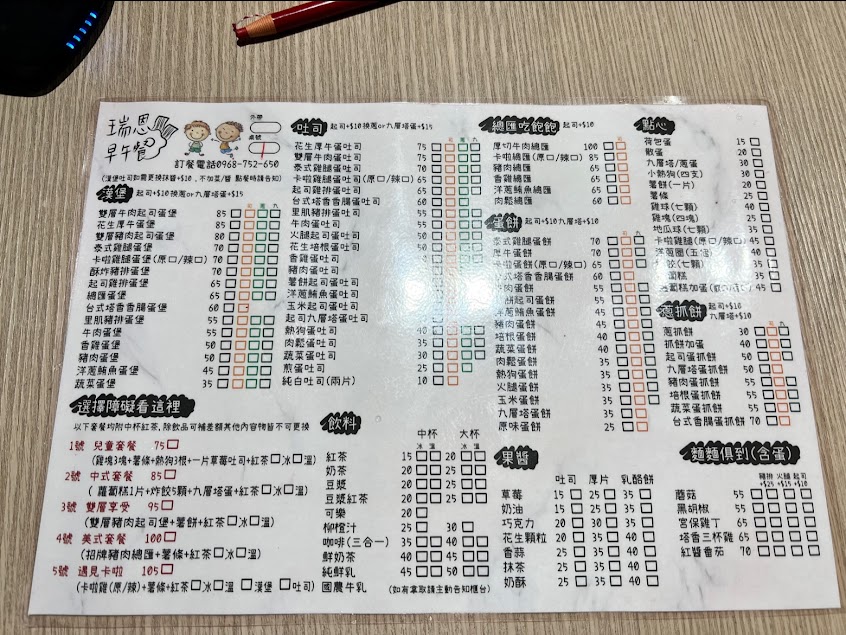 瑞恩
早午餐
外帶
桌號
訂餐電話0968-752-650
(漢堡吐司如需更換抹醬+$10，不加菜/醬 點餐時請告知)
漢堡 起司+$10換蔥or九層塔蛋+$15
雙層牛肉起司蛋堡 85
花生厚牛蛋堡 85
雙層豬肉起司蛋堡 80
泰式雞腿蛋堡 70
卡啦雞腿蛋堡(原口/辣口) 70
酥炸豬排蛋堡 70
起司雞排蛋堡 65
總匯蛋堡 65
台式塔香香腸蛋堡 60
里肌豬排蛋堡 55
牛肉蛋堡 55
香雞蛋堡 50
豬肉蛋堡 50
洋蔥鮪魚蛋堡 45
蔬菜蛋堡 35
吐司 起司+$10換蔥or九層塔蛋+$15
花生厚牛蛋吐司 75
雙層牛肉蛋吐司 75
泰式雞腿蛋吐司 65
卡啦雞腿蛋吐司(原口/辣口) 65
起司雞排蛋吐司 65
台式塔香香腸蛋吐司 60
里肌豬排蛋吐司 55
牛肉蛋吐司 55
火腿起司蛋吐司 50
花生培根蛋吐司 50
香雞蛋吐司
豬肉蛋吐司
薯餅起司蛋吐司
洋蔥鮪魚蛋吐司
玉米起司蛋吐司
起司九層塔蛋吐司
熱狗蛋吐司 40
肉鬆蛋吐司 35
蔬菜蛋吐司 30
煎蛋吐司 25
純白吐司(兩片) 10
總匯吃飽飽 起司+$10
厚切牛肉總匯 100
卡啦總匯(原口/辣口) 85
豬肉總匯
香雞總匯
洋蔥鮪魚總匯
肉鬆總匯
蛋餅 起司+$10九層塔+$10
泰式雞腿蛋餅 70
厚牛蛋餅 70
卡啦蛋餅(原口/辣口) 65
台式塔香香腸蛋餅 60
牛肉蛋餅
薯餅起司蛋餅 55
洋蔥鮪魚蛋餅 45
豬肉蛋餅 45
培根蛋餅 40
蔬菜蛋餅 40
肉鬆蛋餅
熱狗蛋餅
火腿蛋餅
玉米蛋餅
九層塔蛋餅
原味蛋餅
點心
荷包蛋 15
散蛋 20
九層塔/蔥蛋 30
小熱狗(四支)
薯餅(一片) 20
薯條
雞球(七顆) 40
雞塊(四塊)
地瓜球(七顆)
卡啦雞腿(原口/辣口) 45
蔥抓餅 起司+$10
九層塔+$10
蔥抓餅 30
抓餅加蛋 40
起司蛋抓餅 50
九層塔蛋抓餅 50
豬肉蛋抓餅 55
培根蛋抓餅 55
蔬菜蛋抓餅 55
台式香腸蛋抓餅 70
選擇障礙看這裡
以下套餐均附中杯紅茶,除飲品可補差額其他內容物皆不可更換
1號 兒童套餐 75
(雞塊3塊+薯條+熱狗3根+一片草莓吐司+紅茶 冰 溫)
2號 中式套餐 85
(蘿蔔糕1片+炸餃5顆+九層塔蛋+紅茶 冰 溫)
3號 雙層享受 95
(雙層豬肉起司堡+薯餅+紅茶 冰 溫)
4號 美式套餐 100
(招牌豬肉總匯+薯條+紅茶 冰 溫)
5號 遇見卡啦 105
(卡啦雞(原/辣)+薯條+紅茶 冰 溫 漢堡 吐司)
飲料 中杯 大杯
冰 溫 冰 溫
紅茶 15 20
奶茶 20 25
豆漿 20 25
豆漿紅茶 20 25
可樂 20
柳橙汁 25 30
咖啡(三合一) 35 40
鮮奶茶 40 45
純鮮乳 45 50
國農牛乳 (如有拿取請主動告知櫃台)
果醬 吐司 厚片 乳酪餅
草莓 15 25 35
奶油 15 25 35
巧克力 20 30 35
花生顆粒 20 30 40
香蒜 25 35 40
抹茶 25 35 40
奶酥 25 35 40
麵麵俱到(含蛋)
豬排 火腿 起司
+$25 +$15 +$10
蘑菇 55
黑胡椒 55
宮保雞丁 65
塔香三杯雞 65
紅醬番茄 70